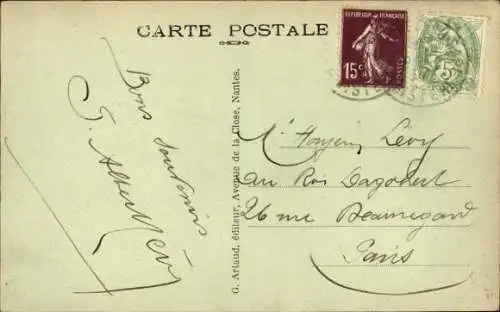 CARTE POSTALE
REPUBLIQUE FRANÇAISE
15c
POSTES
5c
Bons Souvenirs
G. Artaud, éditeur, Avenue de la Close, Nantes.
Lévy
au Roi Dagobert
26 rue Beauregard
Paris